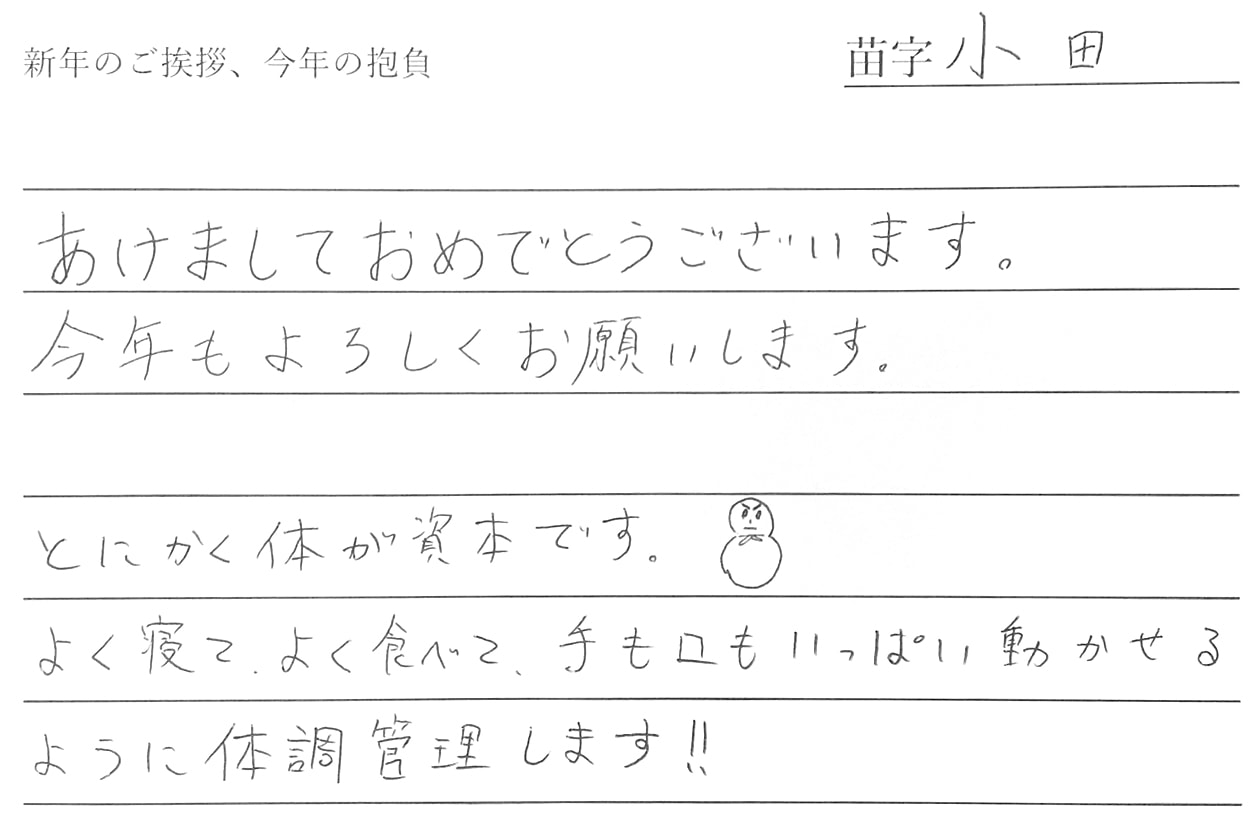 新年のご挨拶、今年の抱負
苗字 小田
あけましておめでとうございます。
今年もよろしくお願いします。
とにかく体が資本です。
よく寝て、よく食べて、手も口もいっぱい動かせる
ように体調管理します!!